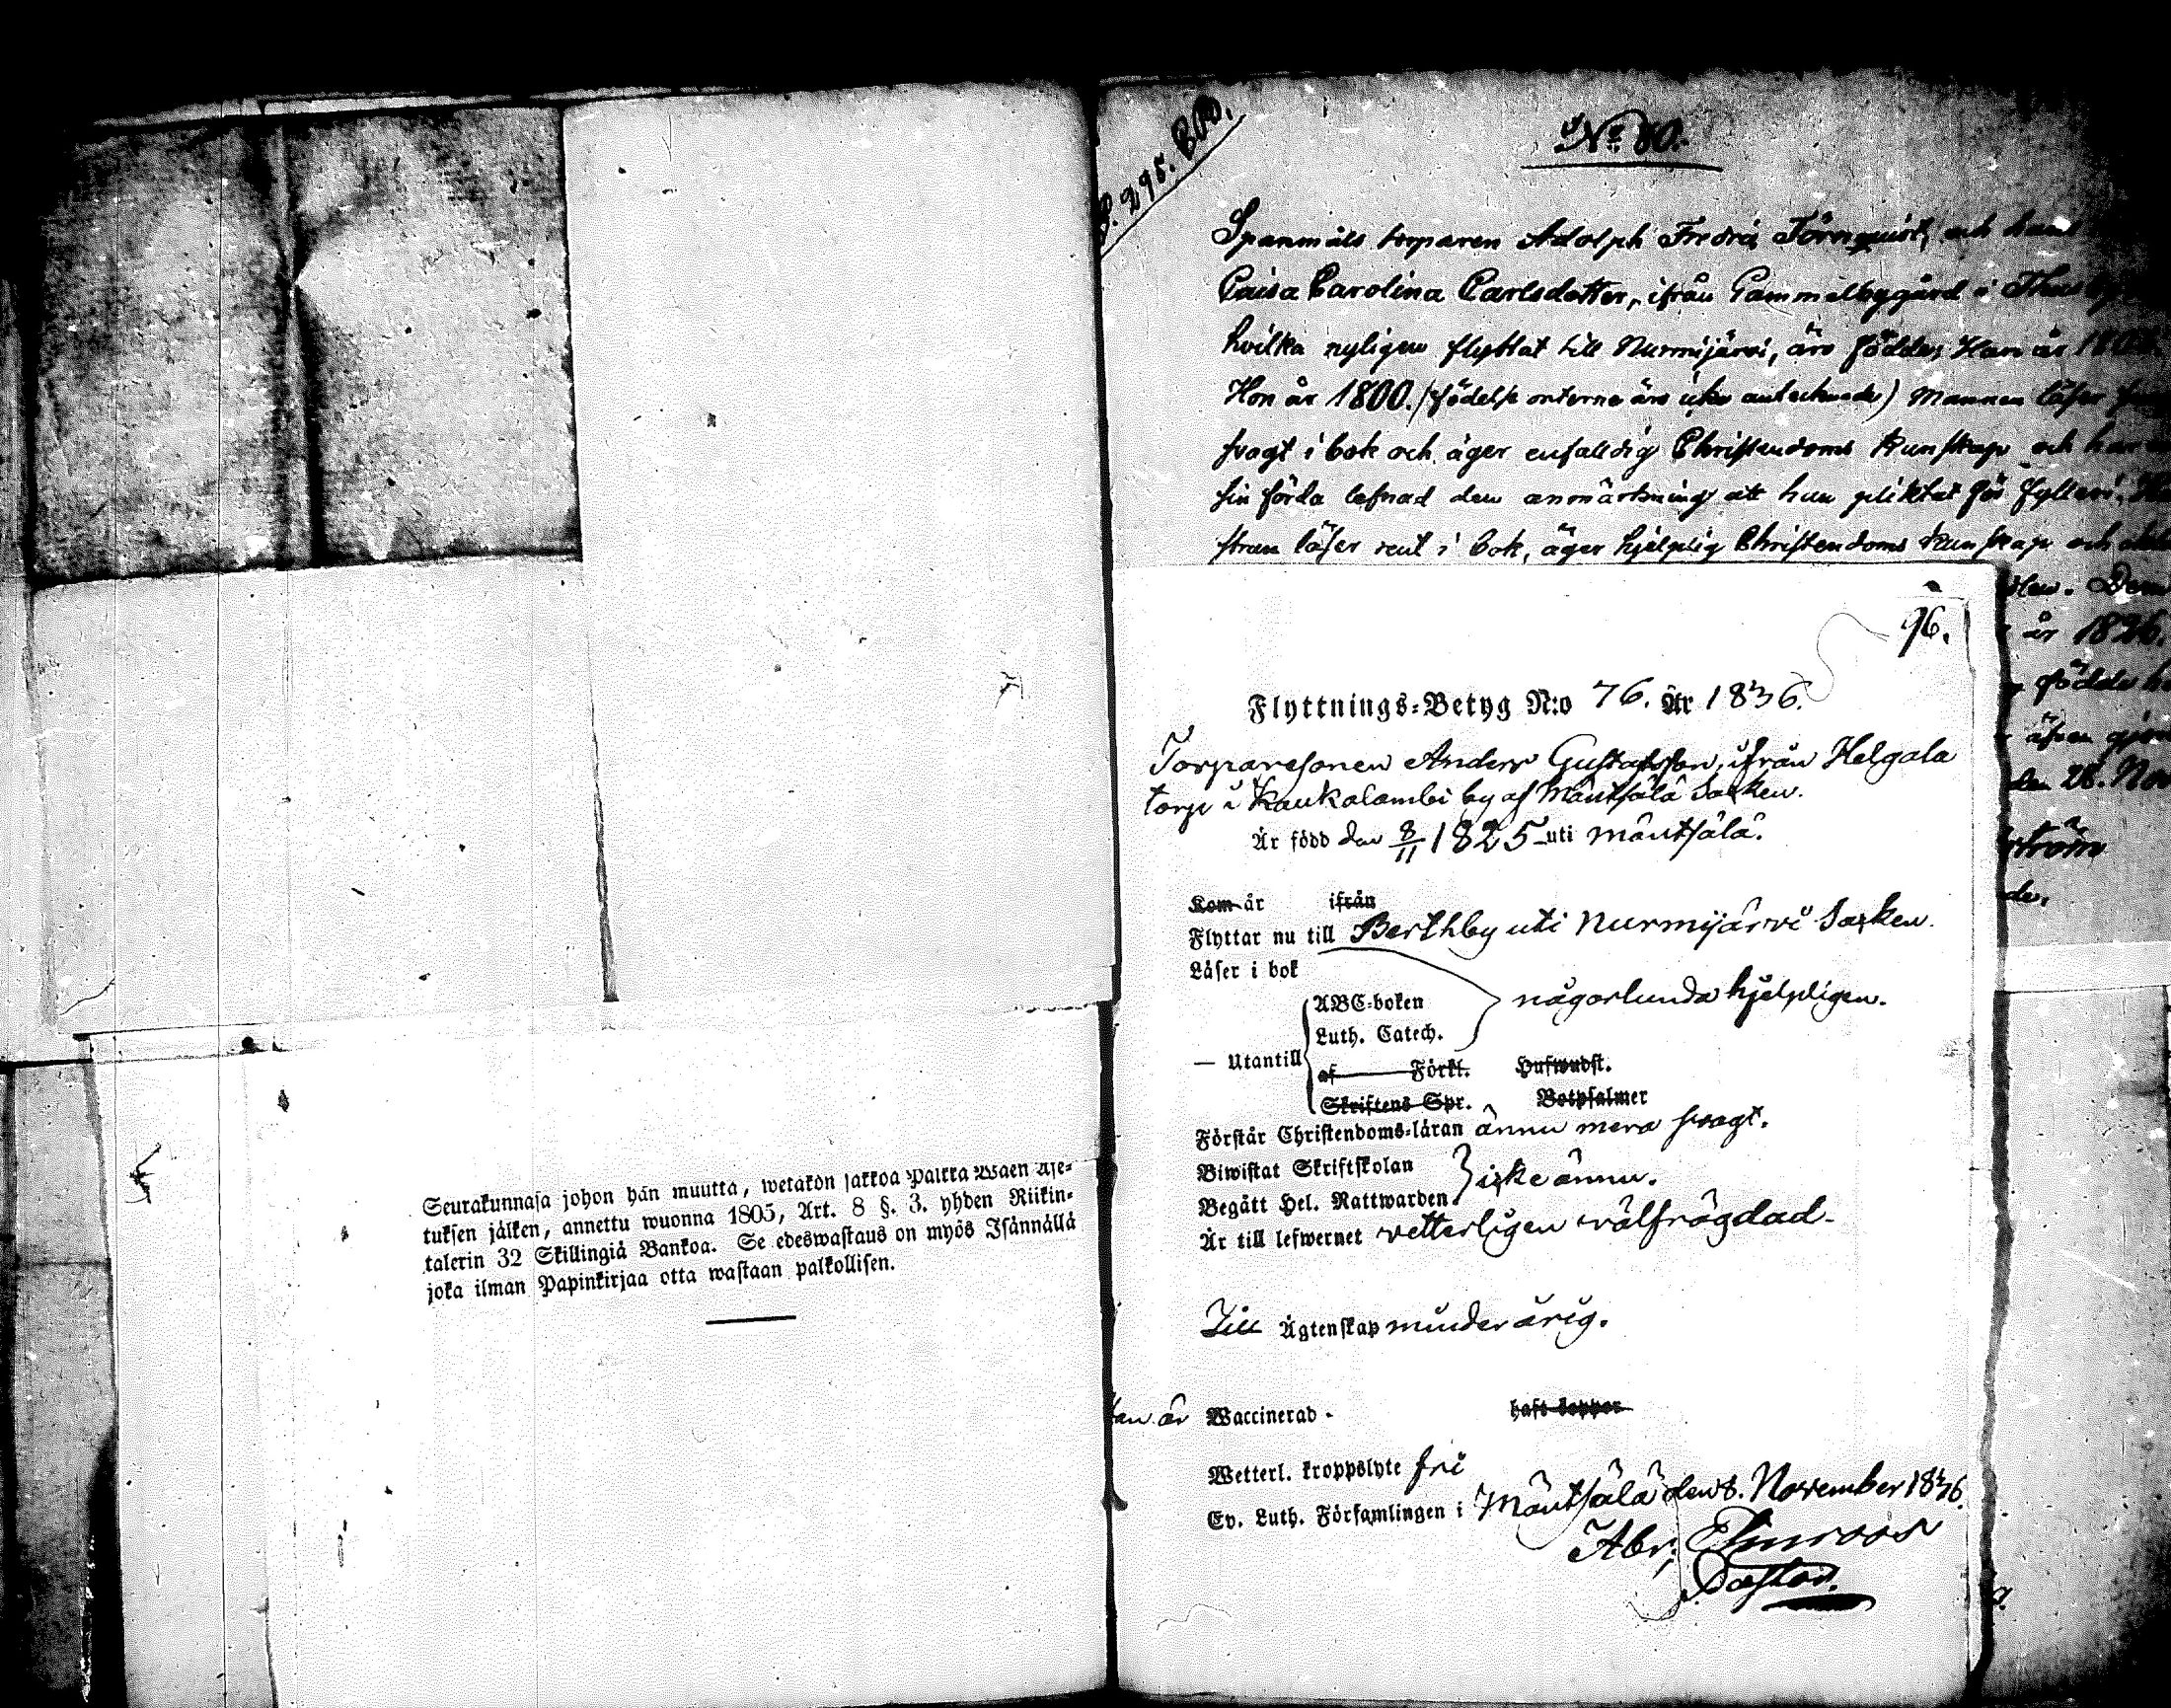 Seurakunnasa johon hän muutta, wetäkön jakkoa Palkka Wäen Ase-
tuksen jälken, annettu wuonna 1805, Art. 8 §. 3. yhden Riikin-
talerin 32 Skillingiä Bankoa. Se edeswastaus on myös Isännällä
joka ilman Papinkirjaa otta wastaan palkollisen.
S. 295.
No 80.
Spanmåls torparen Adolph Fredric Törnquist, och hans
Caisa Carolina Carlsdotter, ifrån Gammelbygård i
hvilka nyligen flyttat till Nurmijärvi, äro födde; Han år
Hon år 1800. (födelse orterne äro icke antecknade) Mannen läser
svagt i bok och äger enfalldig Christendoms kunskap och har
sin förda lefnad den anmärkning att hun pliktat för fylleri.
strun läser rent i bok, äger hjelplig Christendoms kunskap och
Dem
år 1826.
födde
äfven
den 28. Nov
ström
96.
Flyttnings-Betyg N:o 76. År 1836.
Torparesonen Anders Gustafsson, ifrån Helgala
torp i Kaukalambi by af Mäntsälä Socken.
Är född den 8/11 1825 uti Mäntsälä.
Kom år ifrån
Flyttar nu till Berthby uti Nurmijärvi Socken.
Läser i bok
ABC-boken någorlunda hjelpligen.
Luth. Catech.
— Utantill
af Förkl. Husw
Skriftens Spr. Botpsalmer
Förstår Christendoms-läran ännu mera svagt.
Biwistat Skriftskolan
icke ännu.
Begått Hel. Nattwarden
Är till lefwernet vetterligen välfrägdad.
Till Ägtenskap minderårig.
är Waccinerad - haft koppor
Wetterl. kroppslyte fri
Ev. Luth. Församlingen i Mäntsälä den 8. November 1836.
Abr. Elmroos
Pastor.